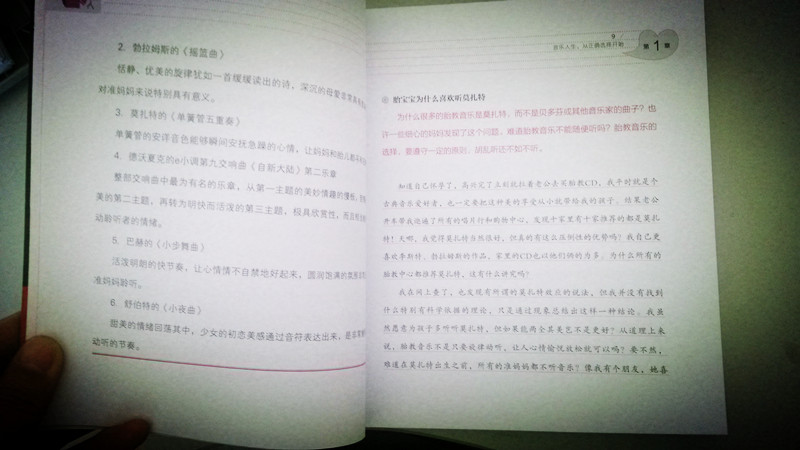 2. 勃拉姆斯的《摇篮曲》
恬静、优美的旋律犹如一首缓缓读出的诗,深沉的母爱
对准妈妈来说特别具有意义。
3. 莫扎特的《单簧管五重奏》
单簧管的安详音色能够瞬间安抚急躁的心情,让妈妈和胎儿都
4. 德沃夏克的e小调第九交响曲《自新大陆》第二乐章
整部交响曲中最为有名的乐章,从第一主题的美妙情趣的慢板,
美的第二主题,再转为明快而活泼的第三主题,极具欣赏性,而且
动聆听者的情绪。
5. 巴赫的《小步舞曲》
活泼明朗的快节奏,让心情情不自禁地好起来,圆润饱满的
准妈妈聆听。
6. 舒伯特的《小夜曲》
甜美的情绪回荡其中,少女的初恋美感通过音符表达出来,是
动听的节奏。
9
音乐人生,从正确选择开始
第1章
胎宝宝为什么喜欢听莫扎特
为什么很多的胎教音乐是莫扎特,而不是贝多芬或其他音乐家的曲子?也
许一些细心的妈妈发现了这个问题,难道胎教音乐不能随便听吗?胎教音乐的
选择,要遵守一定的原则,胡乱听还不如不听。
知道自己怀孕了,高兴完了立刻就拉着老公去买胎教CD,我平时就是个
古典音乐爱好者,也一定要把这种美的享受从小就带给我的孩子。结果老公
开车带我逛遍了所有的唱片行和购物中心,发现十家里有十家推荐的都是莫扎
特!天哪,我觉得莫扎特当然很好,但真的有这么压倒性的优势吗?我自己更
喜欢李斯特、勃拉姆斯的作品,家里的CD也以他们俩的为多。为什么所有的
胎教中心都推荐莫扎特,这有什么讲究吗?
我在网上查了,也发现有所谓的莫扎特效应的说法,但我并没有找到
什么特别有科学依据的理论,只是通过现象总结出这样一种结论。我虽
然愿意为孩子多听听莫扎特,但如果能两全其美岂不是更好?从道理上来
说,胎教音乐不是只要旋律动听,让人心情愉悦放松就可以吗?要不然,
难道在莫扎特出生之前,所有的准妈妈都不听音乐?像我有个朋友,她喜